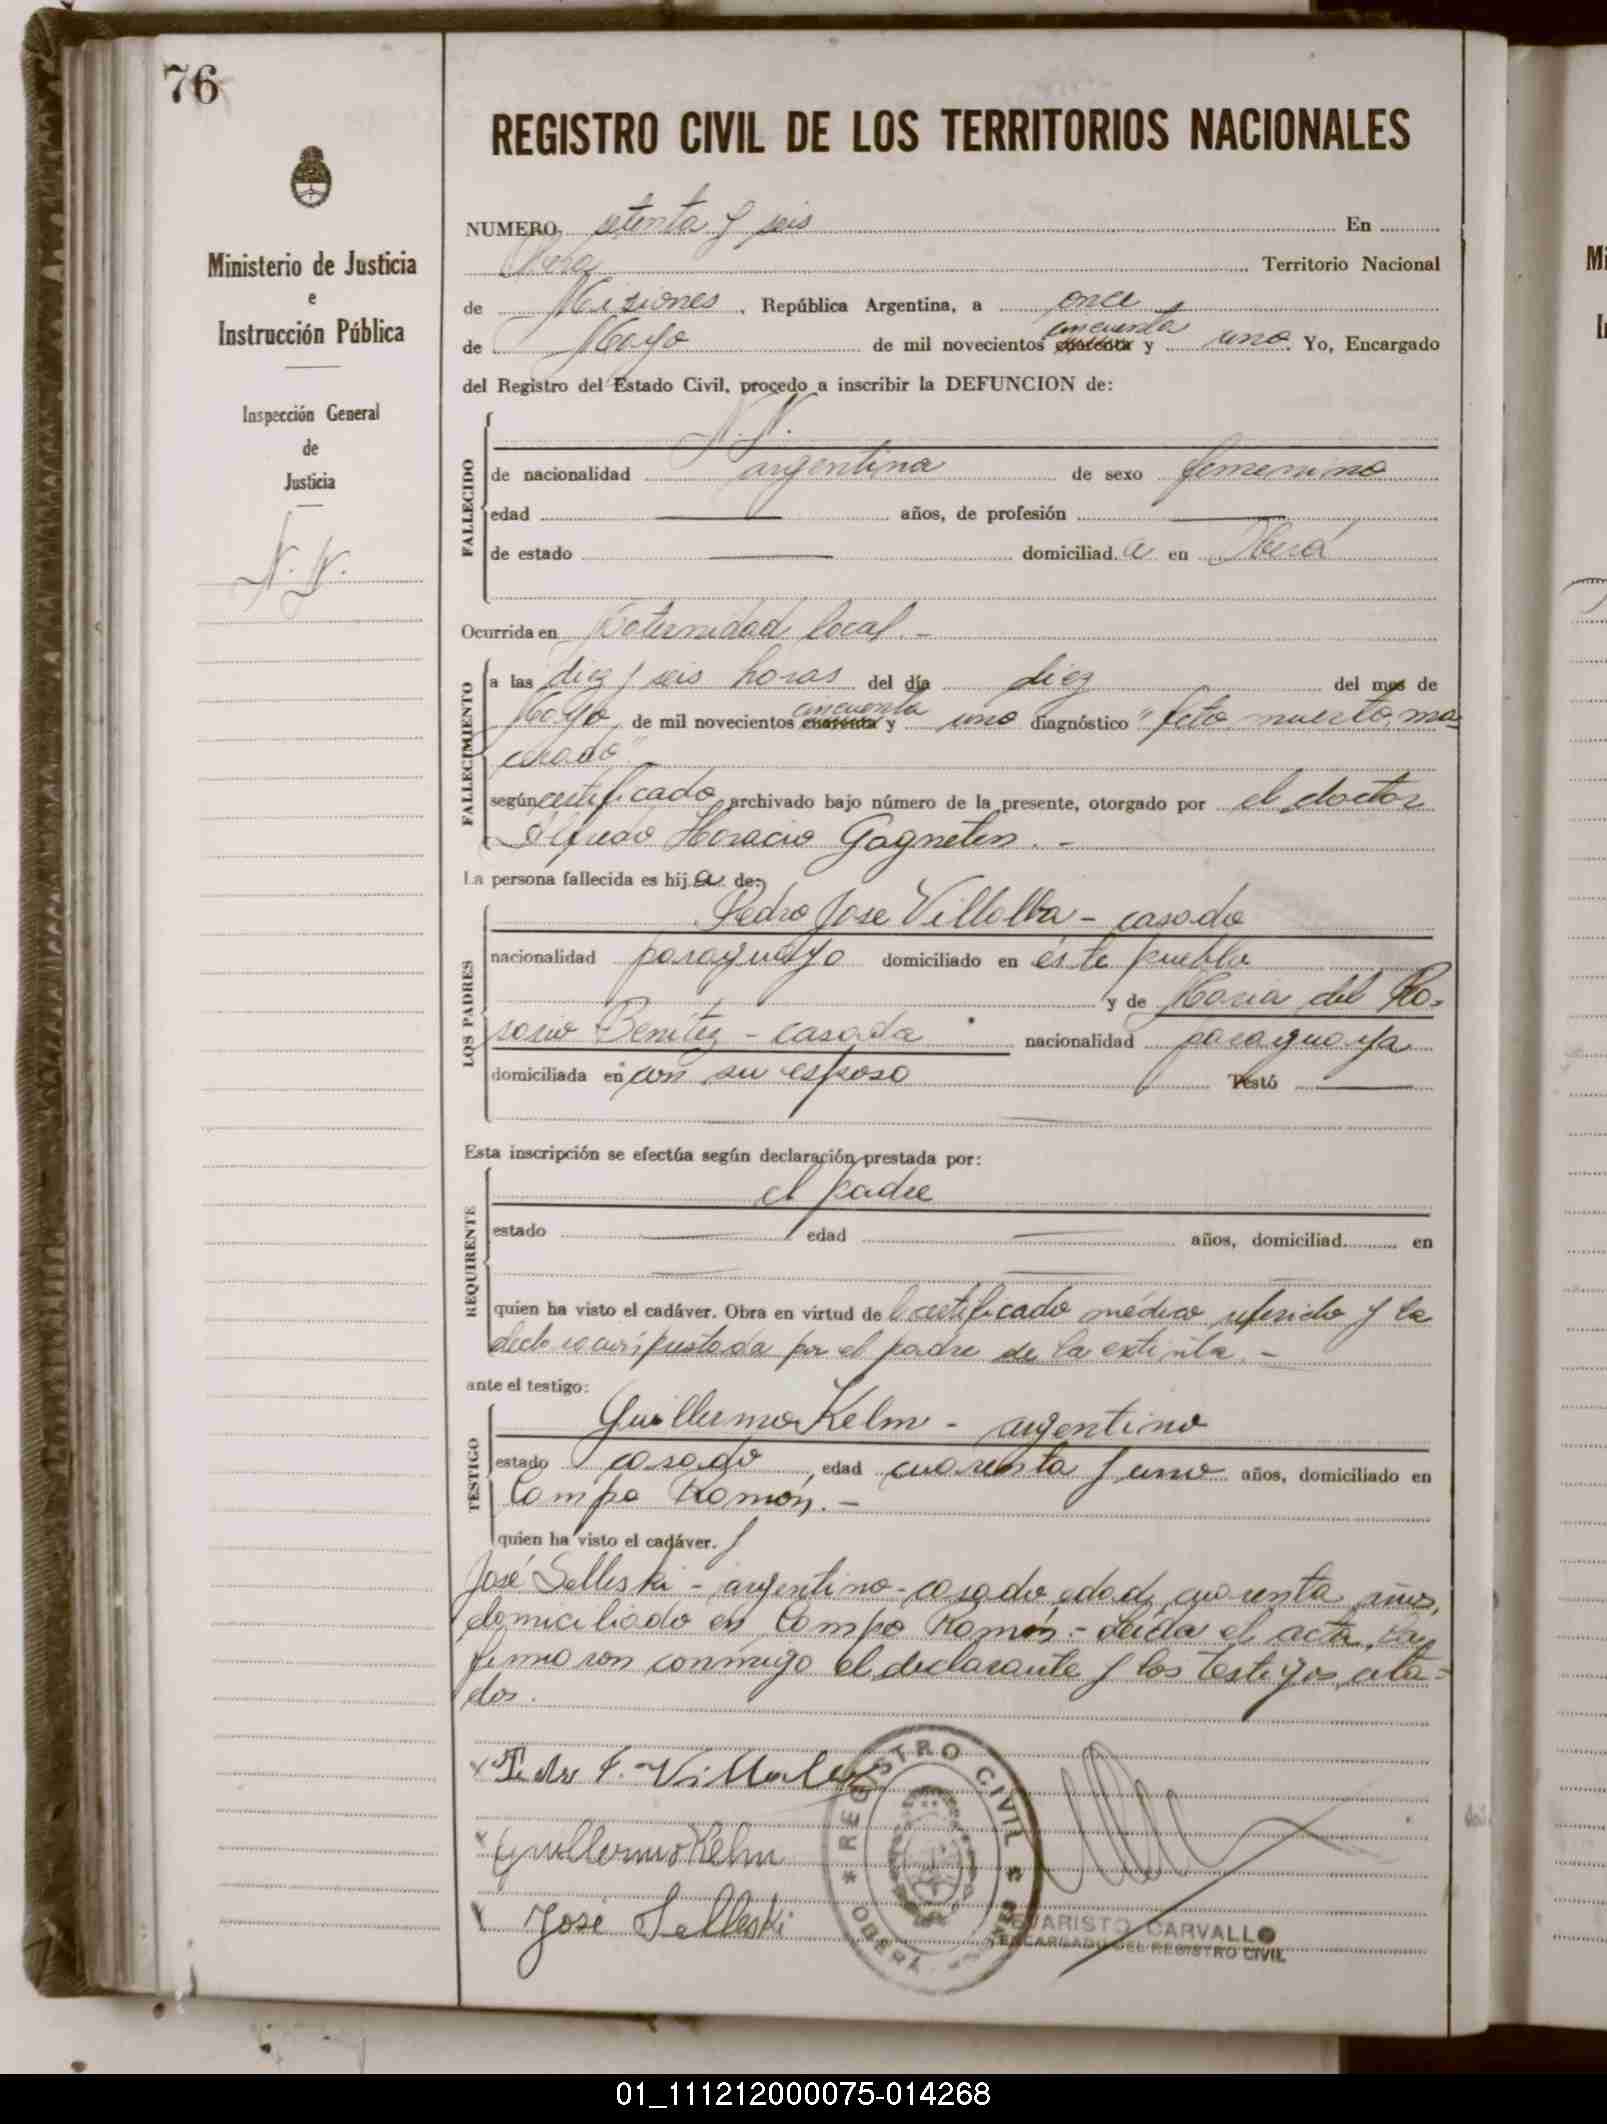 76
REGISTRO CIVIL DE LOS TERRITORIOS NACIONALES
Ministerio de Justicia
e
Instrucción Pública
Inspección General
de
Justicia
N. N.
NUMERO, setenta y seis En
Oberá Territorio Nacional
de Misiones, República Argentina, a once
de Mayo de mil novecientos cuarenta cincuenta y uno. Yo, Encargado
del Registro del Estado Civil, procedo a inscribir la DEFUNCION de:
FALLECIDO
N. N.
de nacionalidad argentina de sexo femenino
edad — años, de profesión —
de estado — domiciliad.a en Oberá
Ocurrida en Maternidad local.-
FALLECIMIENTO
a las diez y seis horas del día diez del mes de
Mayo de mil novecientos cuarenta cincuenta y uno diagnóstico "feto muerto, ma-
cerado"-
según certificado archivado bajo número de la presente, otorgado por el doctor
Alfredo Horacio Gagneten.-
La persona fallecida es hij.a de:
LOS PADRES
Pedro Jose Villalba - casado
nacionalidad paraguayo domiciliado en éste pueblo
y de Maria del Ro-
sario Benítez - casada nacionalidad paraguaya
domiciliada en con su esposo Testó —
Esta inscripción se efectúa según declaración prestada por:
REQUIRENTE
el padre
estado — edad — años, domiciliad. en
quien ha visto el cadáver. Obra en virtud de l certificado médico referido y la
declaración prestada por el padre de la extinta.-
ante el testigo:
TESTIGO
Guillermo Kelm - argentino
estado casado, edad cuarenta y uno años, domiciliado en
Campo Ramón.-
quien ha visto el cadáver. y
José Selleski - argentino - casado, edad, cuarenta años,
domiciliado en Campo Ramón.- Leída el acta, la
firmaron conmigo el declarante y los testigos cita-
dos.
Pedro J. Villalba
Guillermo Kelm
José Selleski
REGISTRO CIVIL
OBERÁ
EVARISTO CARVALLO
ENCARGADO DEL REGISTRO CIVIL
01_111212000075-014268